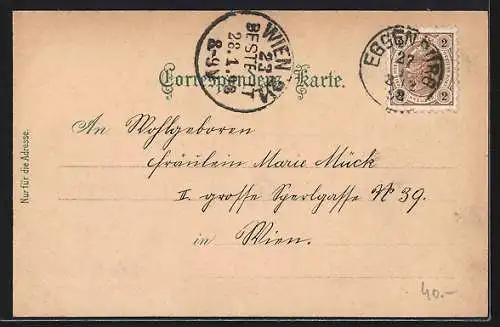 WIEN
BESTELLT
28.1.98
8-9 V
EGGENBURG
27
2 2
2 2
Correspondenz-Karte.
An Wohlgeboren
Fräulein Marie Mück
II. grosse Sperlgasse № 39.
in Wien.
Nur für die Adresse.
40.-